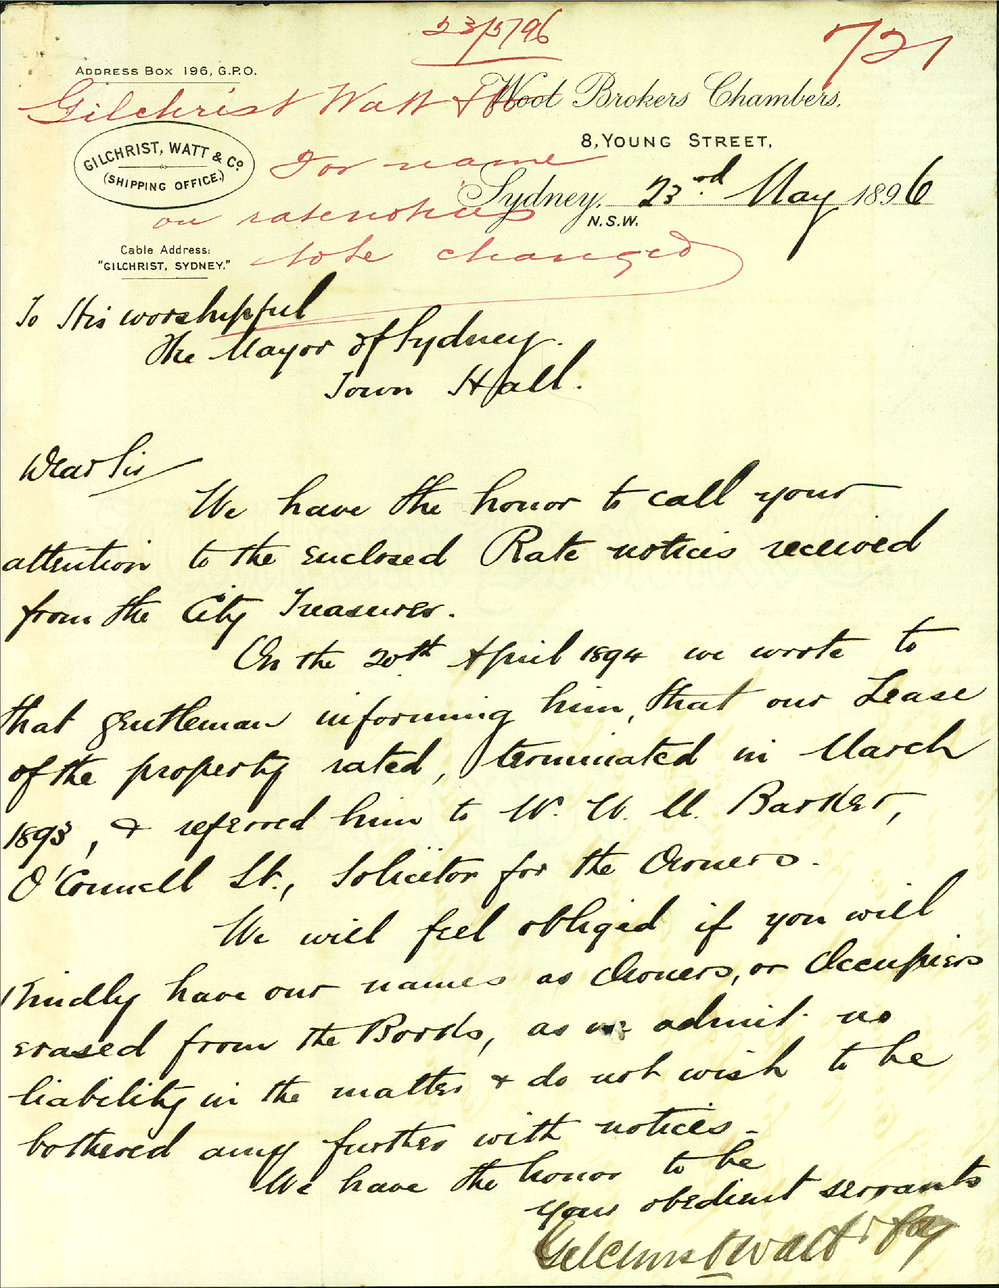 23/5/96
721
ADDRESS BOX 196, G.P.O.
Gilchrist Watt &
Wool Brokers Chambers.
8, YOUNG STREET,
GILCHRIST, WATT & Co
(SHIPPING OFFICE.)
For name
Sydney, 23rd May 1896
N.S.W.
on ratenotices
to be changed
Cable Address:
"GILCHRIST, SYDNEY."
To His worshipful
The Mayor of Sydney.
Town Hall.
Dear Sir
We have the honor to call your
attention to the enclosed Rate notices received
from the City Treasurer.
On the 20th April 1894 we wrote to
that gentleman informing him, that our Lease
of the property rated, terminated in March
1893, & referred him to W. W. Barker,
O'Connell St., Solicitor for the Owners.
We will feel obliged if you will
Kindly have our names as Owners, or Occupiers
erased from the Books, as we admit no
liability in the matter & do not wish to be
bothered any further with notices.
We have the honor to be
your obedient servants
Gilchrist Watt & Coy